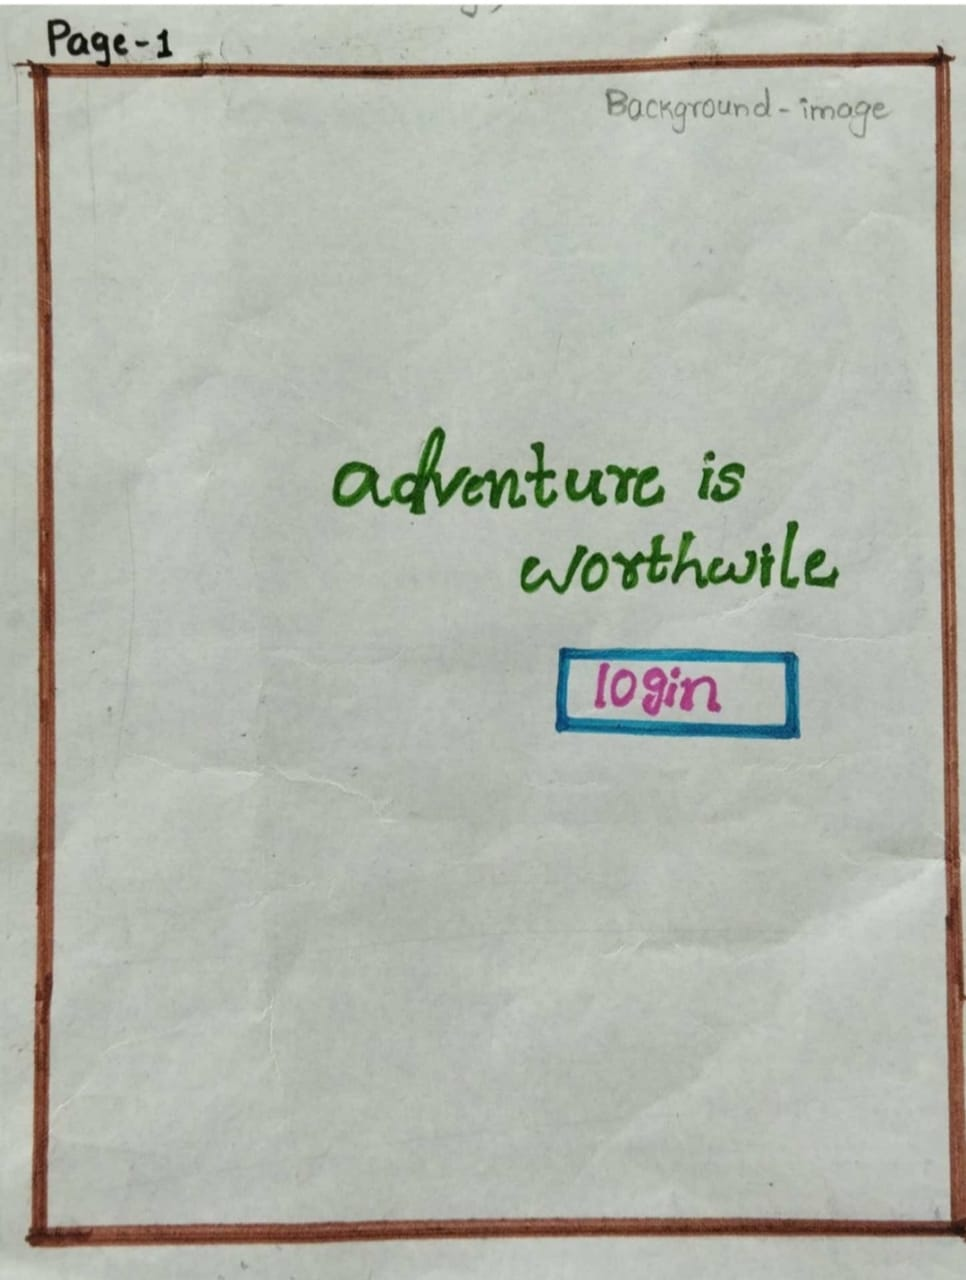 Page-1
Background-image
adventure is
worthwile
login